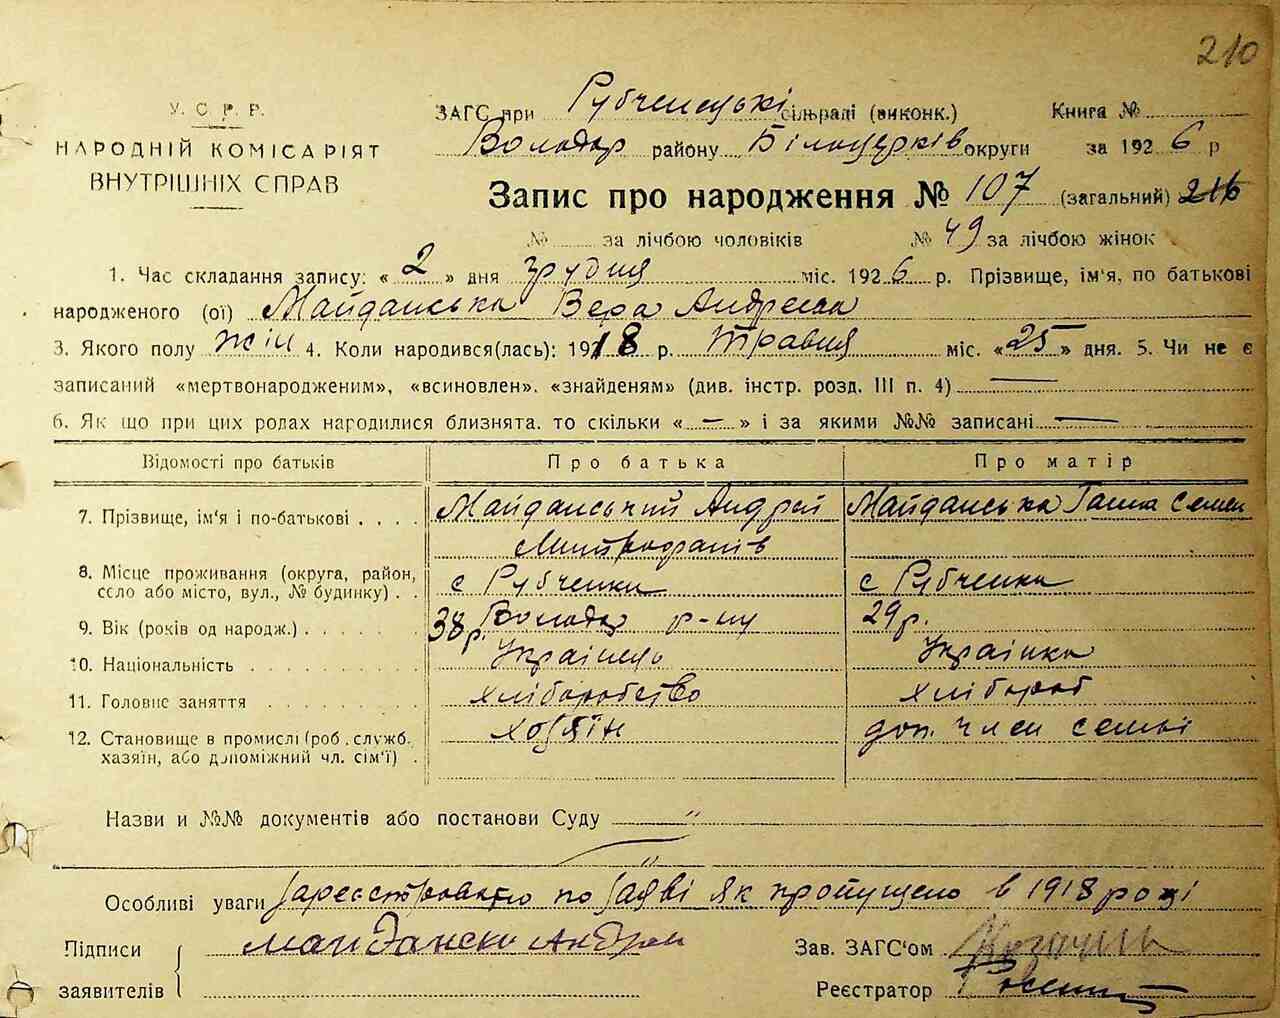 210
У.С.Р.Р.
НАРОДНІЙ КОМІСАРІЯТ
ВНУТРІШНІХ СПРАВ
ЗАГС при Рубченській сільраді (виконк.) Книга №
Володар району Білоцерків округи за 1926 р
Запис про народження № 107 (загальний) 216
№ за лічбою чоловіків № 49 за лічбою жінок
1. Час складання запису: «2» дня грудня міс. 1926 р. Прізвище, ім'я, по батькові
народженого (ої) Майданська Вера Андреєва
3. Якого полу жін 4. Коли народився(лась): 1918 р. травня міс. «25» дня. 5. Чи не є
записаний «мертвонародженим», «всиновлен». «знайденям» (див. інстр. розд. III п. 4) —
6. Як що при цих родах народилися близнята. то скільки «—» і за якими №№ записані —
Відомості про батьків Про батька Про матір
7. Прізвище, ім'я і по-батькові . . . . Майданський Андрій Майданська Ганна Семен
Митрофанів
8. Місце проживання (округа, район, с Рубченки с Рубченки
село або місто, вул., № будинку) . .
9. Вік (років од народж.) . . . . . . 38 р. Володар р-ну 29 р.
10. Національність . . . . . . . . . Українець Українка
11. Головне заняття . . . . . . . . хліборобство хлібороб
12. Становище в промислі (роб. службл. хозяїн доп. член семьї
хазяїн, або допоміжний чл. сім'ї) .
Назви и №№ документів або постанови Суду — "
"
Особливі уваги Зареєстровано по заяві як пропущено в 1918 році
Підписи Майдански Андрей Зав. ЗАГС'ом
заявителів Реєстратор